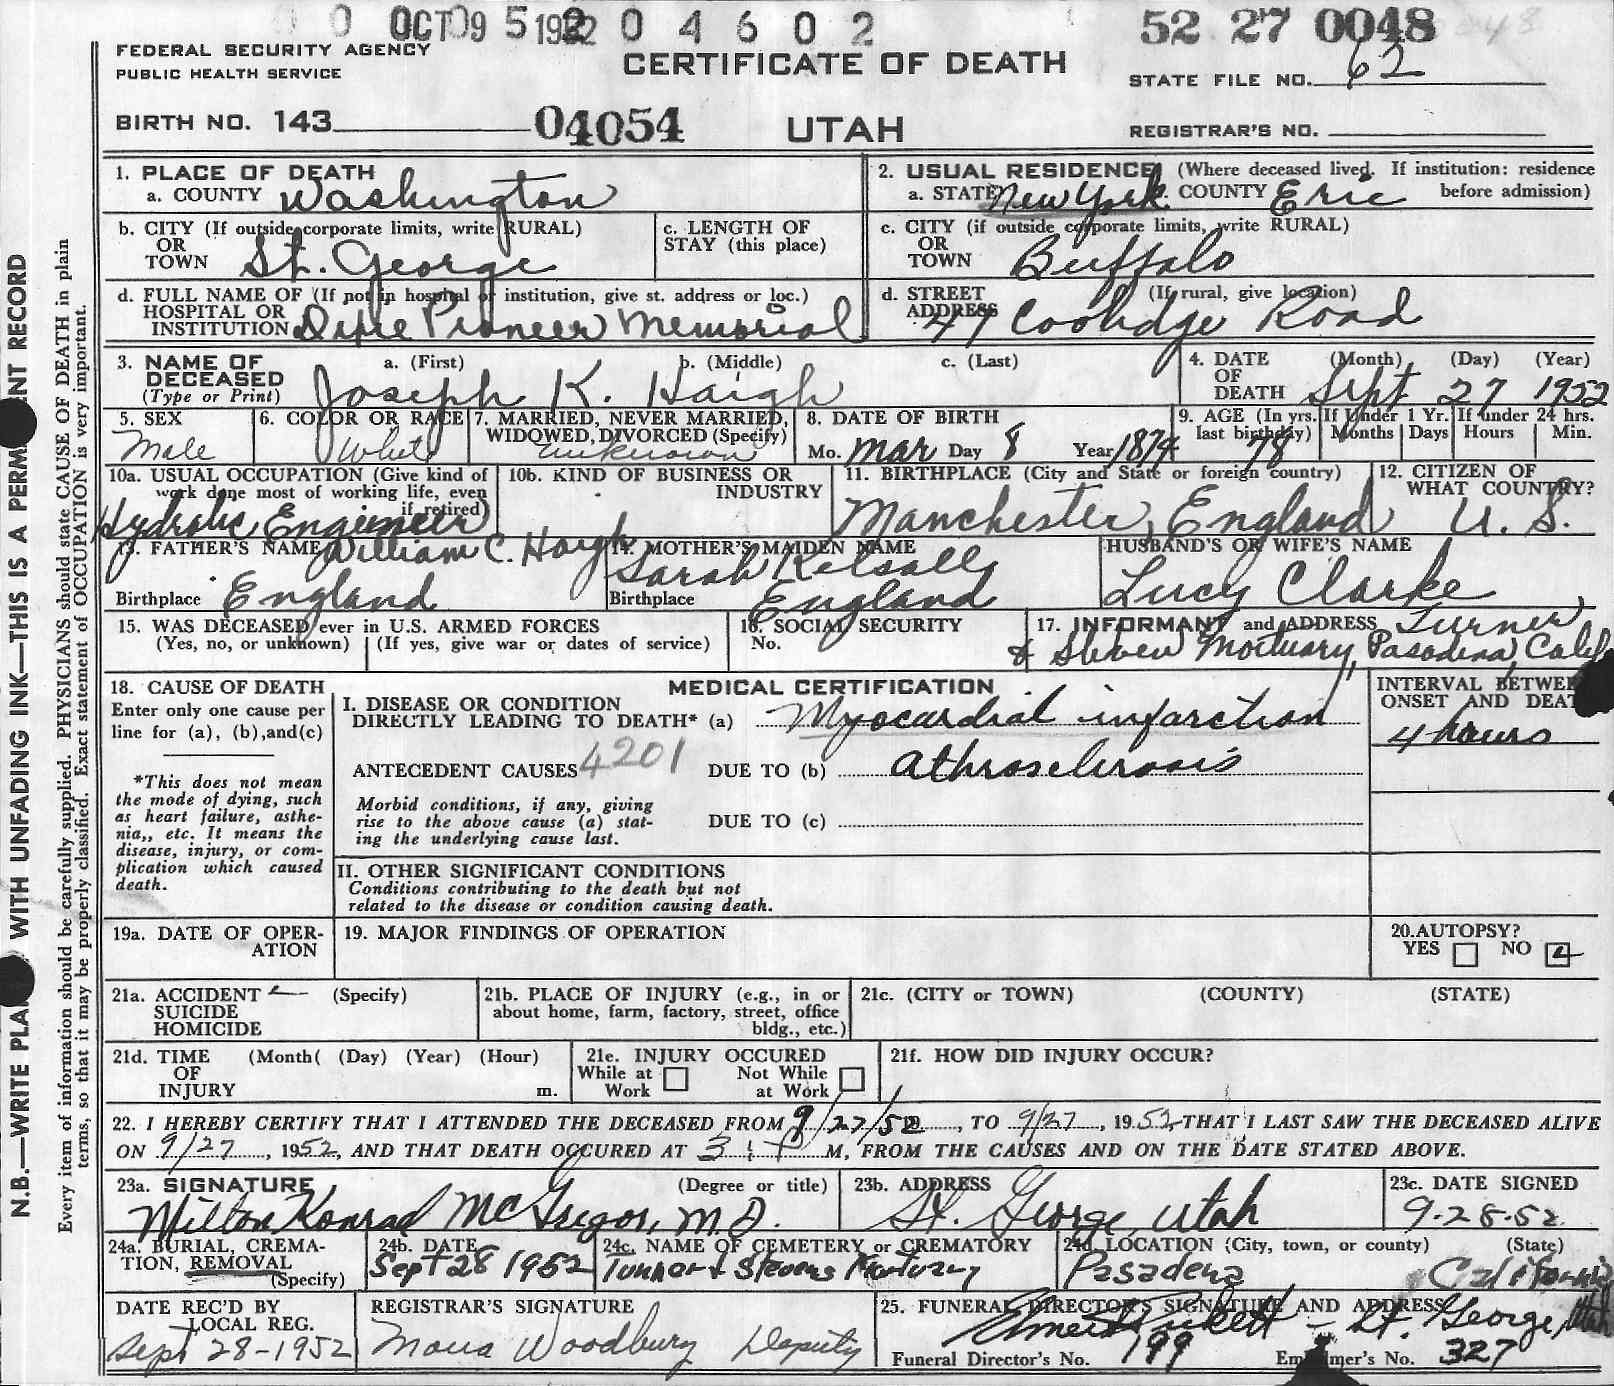 OCT 9 5 1952 0 4 6 0 2
52 27 0048
FEDERAL SECURITY AGENCY
PUBLIC HEALTH SERVICE
CERTIFICATE OF DEATH
STATE FILE NO. 62
BIRTH NO. 143 04054 UTAH
REGISTRAR'S NO.
N.B.—WRITE PLAI WITH UNFADING INK—THIS IS A PERM ENT RECORD
Every item of information should be carefully supplied. PHYSICIANS should state CAUSE OF DEATH in plain
terms, so that it may be properly classified. Exact statement of OCCUPATION is very important.
1. PLACE OF DEATH
a. COUNTY Washington
2. USUAL RESIDENCE (Where deceased lived. If institution: residence
a. STATE New York COUNTY Eric before admission)
b. CITY (If outside corporate limits, write RURAL)
OR
TOWN St. George
c. LENGTH OF
STAY (this place)
c. CITY (if outside corporate limits, write RURAL)
OR
TOWN Buffalo
d. FULL NAME OF (If not in hospital or institution, give st. address or loc.)
HOSPITAL OR
INSTITUTION Dixie Pioneer Memorial
d. STREET (If rural, give location)
ADDRESS 47 Coolidge Road
3. NAME OF a. (First) b. (Middle) c. (Last)
DECEASED
(Type or Print) Joseph K. Haigh
4. DATE (Month) (Day) (Year)
OF
DEATH Sept 27 1952
5. SEX
Male
6. COLOR OR RACE
White
7. MARRIED, NEVER MARRIED,
WIDOWED, DIVORCED (Specify)
unknown
8. DATE OF BIRTH
Mo. Mar Day 8 Year 1874
9. AGE (In yrs.
last birthday)
78
If Under 1 Yr.
Months Days
If under 24 hrs.
Hours Min.
10a. USUAL OCCUPATION (Give kind of
work done most of working life, even
if retired)
Hydralic Engineer
10b. KIND OF BUSINESS OR
INDUSTRY
11. BIRTHPLACE (City and State or foreign country)
Manchester, England
12. CITIZEN OF
WHAT COUNTRY?
U. S.
13. FATHER'S NAME William C. Haigh
Birthplace England
14. MOTHER'S MAIDEN NAME
Sarah Kelsall
Birthplace England
HUSBAND'S OR WIFE'S NAME
Lucy Clarke
15. WAS DECEASED ever in U.S. ARMED FORCES
(Yes, no, or unknown) (If yes, give war or dates of service)
16. SOCIAL SECURITY
No.
17. INFORMANT and ADDRESS Turner
& Steven Mortuary, Pasadena, Calif
18. CAUSE OF DEATH
Enter only one cause per
line for (a), (b), and(c)
*This does not mean
the mode of dying, such
as heart failure, asthe-
nia,, etc. It means the
disease, injury, or com-
plication which caused
death.
MEDICAL CERTIFICATION
I. DISEASE OR CONDITION
DIRECTLY LEADING TO DEATH* (a) Myocardial infarction
ANTECEDENT CAUSES 4201 DUE TO (b) athrosclerosis
Morbid conditions, if any, giving
rise to the above cause (a) stat-
ing the underlying cause last.
DUE TO (c)
II. OTHER SIGNIFICANT CONDITIONS
Conditions contributing to the death but not
related to the disease or condition causing death.
INTERVAL BETWEE
ONSET AND DEAT
4 hours
19a. DATE OF OPER-
ATION
19. MAJOR FINDINGS OF OPERATION
20. AUTOPSY?
YES NO
21a. ACCIDENT (Specify)
SUICIDE
HOMICIDE
21b. PLACE OF INJURY (e.g., in or
about home, farm, factory, street, office
bldg., etc.)
21c. (CITY or TOWN) (COUNTY) (STATE)
21d. TIME (Month( (Day) (Year) (Hour)
OF
INJURY m.
21e. INJURY OCCURED
While at Not While
Work at Work
21f. HOW DID INJURY OCCUR?
22. I HEREBY CERTIFY THAT I ATTENDED THE DECEASED FROM 9/27/52, TO 9/27, 1952, THAT I LAST SAW THE DECEASED ALIVE
ON 9/27, 1952, AND THAT DEATH OCCURED AT 3 : P M, FROM THE CAUSES AND ON THE DATE STATED ABOVE.
23a. SIGNATURE (Degree or title)
Milton Konrad McGregor, M.D.
23b. ADDRESS
St. George, Utah
23c. DATE SIGNED
9-28-52
24a. BURIAL, CREMA-
TION, REMOVAL
(Specify)
24b. DATE
Sept 28 1952
24c. NAME OF CEMETERY or CREMATORY
Turner & Stevens Mortuary
24d. LOCATION (City, town, or county) (State)
Pasadena California
DATE REC'D BY
LOCAL REG.
Sept 28-1952
REGISTRAR'S SIGNATURE
Mona Woodbury Deputy
25. FUNERAL DIRECTOR'S SIGNATURE AND ADDRESS
Pickett - St. George, Utah
Funeral Director's No. 199 Em mer's No. 327